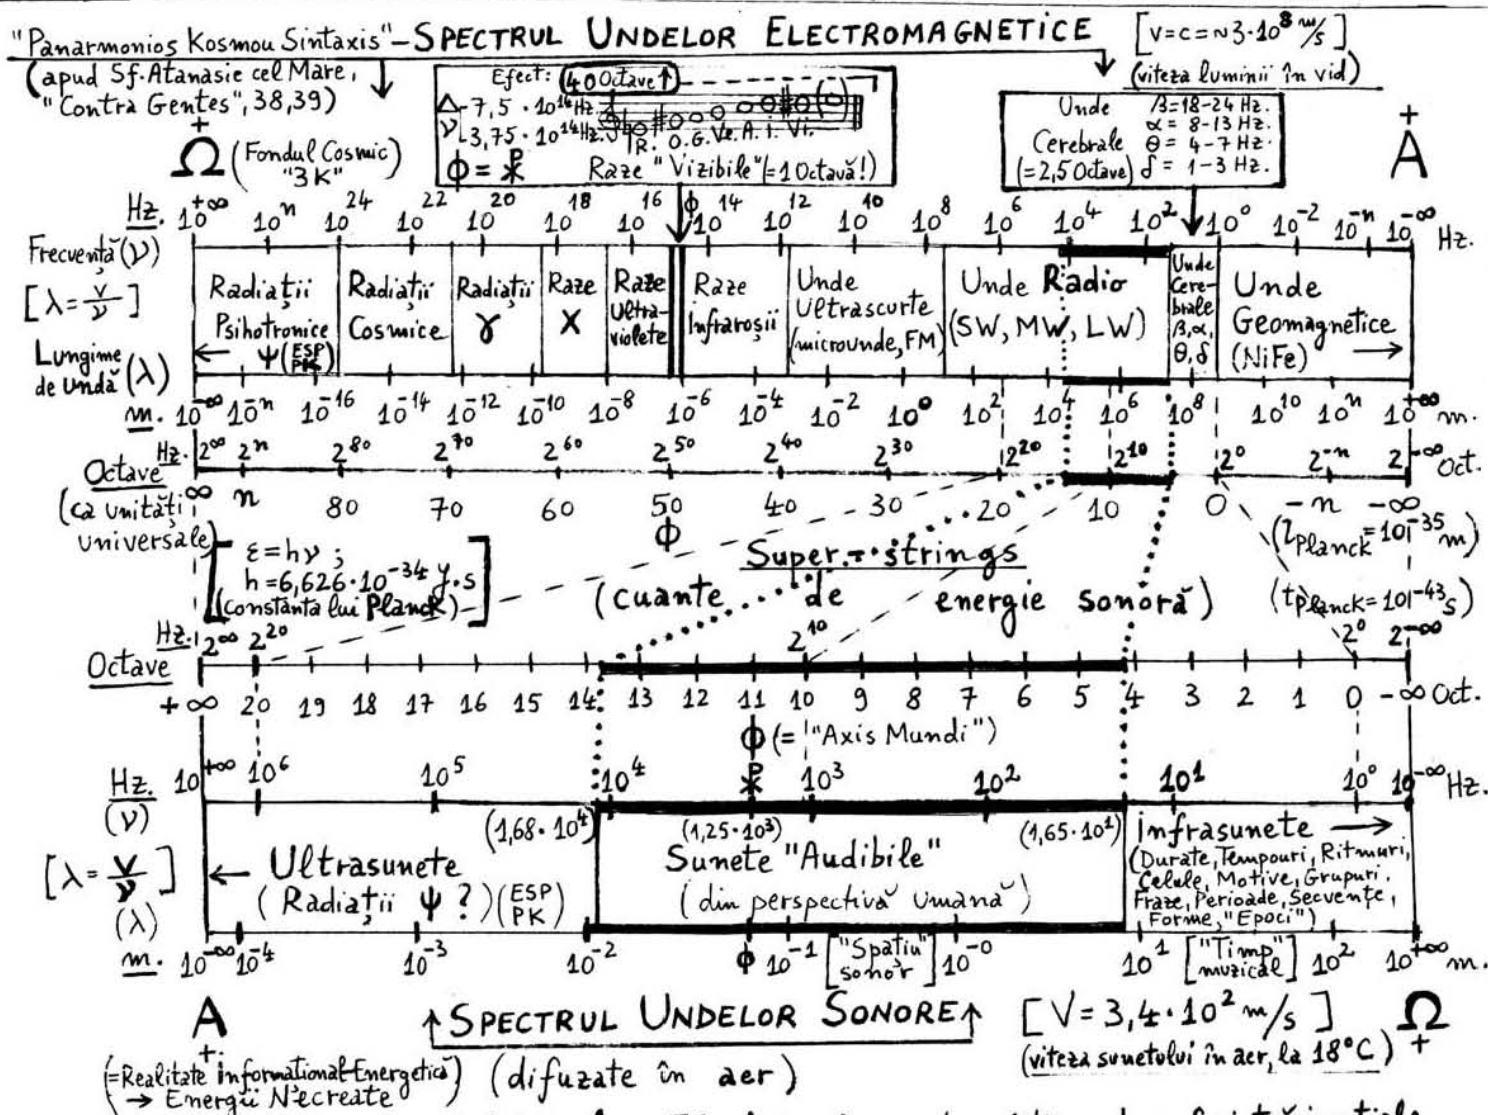 "Panarmonios Kosmou Sintaxis" – SPECTRUL UNDELOR ELECTROMAGNETICE [v=c=~3·10⁸ m/s]
(apud Sf. Atanasie cel Mare, "Contra Gentes", 38,39)
(viteza luminii în vid)
Efect: 40 Octave ↑
△ 7,5 · 10¹⁴ Hz
ν 3,75 · 10¹⁴ Hz.
R. O. G. Ve. A. I. Vi.
ϕ = ☧ Raze "Vizibile" (=1 Octavă!)
Unde Cerebrale (=2,5 Octave)
β=18-24 Hz.
α = 8-13 Hz.
θ = 4-7 Hz.
δ = 1-3 Hz.
+ Ω (Fondul Cosmic "3K")
+ A
Hz. 10⁺∞ 10ⁿ 10²⁴ 10²² 10²⁰ 10¹⁸ 10¹⁶ ϕ 10¹⁴ 10¹² 10¹⁰ 10⁸ 10⁶ 10⁴ 10² 10⁰ 10⁻² 10⁻ⁿ 10⁻∞ Hz.
Frecvență (ν)
[λ = v/ν]
Lungime de undă (λ)
Radiații Psihotronice
← Ψ (ESP PK)
Radiații Cosmice
Radiații γ
Raze X
Raze Ultra-violete
Raze Infraroșii
Unde Ultrascurte (microunde, FM)
Unde Radio (SW, MW, LW)
Unde Cere-brale β,α, θ,δ
Unde Geomagnetice (NiFe) →
m. 10⁻∞ 10⁻ⁿ 10⁻¹⁶ 10⁻¹⁴ 10⁻¹² 10⁻¹⁰ 10⁻⁸ 10⁻⁶ 10⁻⁴ 10⁻² 10⁰ 10² 10⁴ 10⁶ 10⁸ 10¹⁰ 10ⁿ 10⁺∞ m.
Hz. 2∞ 2ⁿ 2⁸⁰ 2⁷⁰ 2⁶⁰ 2⁵⁰ 2⁴⁰ 2³⁰ 2²⁰ 2¹⁰ 2⁰ 2⁻ⁿ 2⁻∞ Oct.
Octave
(ca unități universale)
∞ n 80 70 60 50 40 30 20 10 0 -n -∞
ϕ
[ε = hν ;
h = 6,626·10⁻³⁴ J·s
(constanta lui Planck)]
Super-strings
(cuante de energie sonoră)
(lPlanck = 10⁻³⁵ m)
(tPlanck = 10⁻⁴³ s)
Hz. 2∞ 2²⁰ 2¹⁰ 2⁰ 2⁻∞
Octave
+∞ 20 19 18 17 16 15 14 13 12 11 10 9 8 7 6 5 4 3 2 1 0 -∞ Oct.
ϕ (= "Axis Mundi")
☧
Hz. 10⁺∞ 10⁶ 10⁵ 10⁴ 10³ 10² 10¹ 10⁰ 10⁻∞ Hz.
(ν)
[λ = v/ν]
(λ)
(1,68·10⁴)
← Ultrasunete
(Radiații Ψ ?) (ESP PK)
(1,25·10³)
(1,65·10¹)
Sunete "Audibile"
(din perspectivă umană)
Infrasunete →
(Durate, Tempouri, Ritmuri,
Celule, Motive, Grupuri,
Fraze, Perioade, Secvențe,
Forme, "Epoci")
m. 10⁻∞ 10⁻⁴ 10⁻³ 10⁻² ϕ 10⁻¹ ["Spațiu" sonor] 10⁻⁰ 10¹ ["Timp" muzical] 10² 10⁺∞ m.
A +
↑ SPECTRUL UNDELOR SONORE ↑
[V = 3,4·10² m/s]
Ω +
(=Realitate Informațional-Energetică)
→ Energii Necreate
(difuzate în aer)
(viteza sunetului în aer, la 18°C)